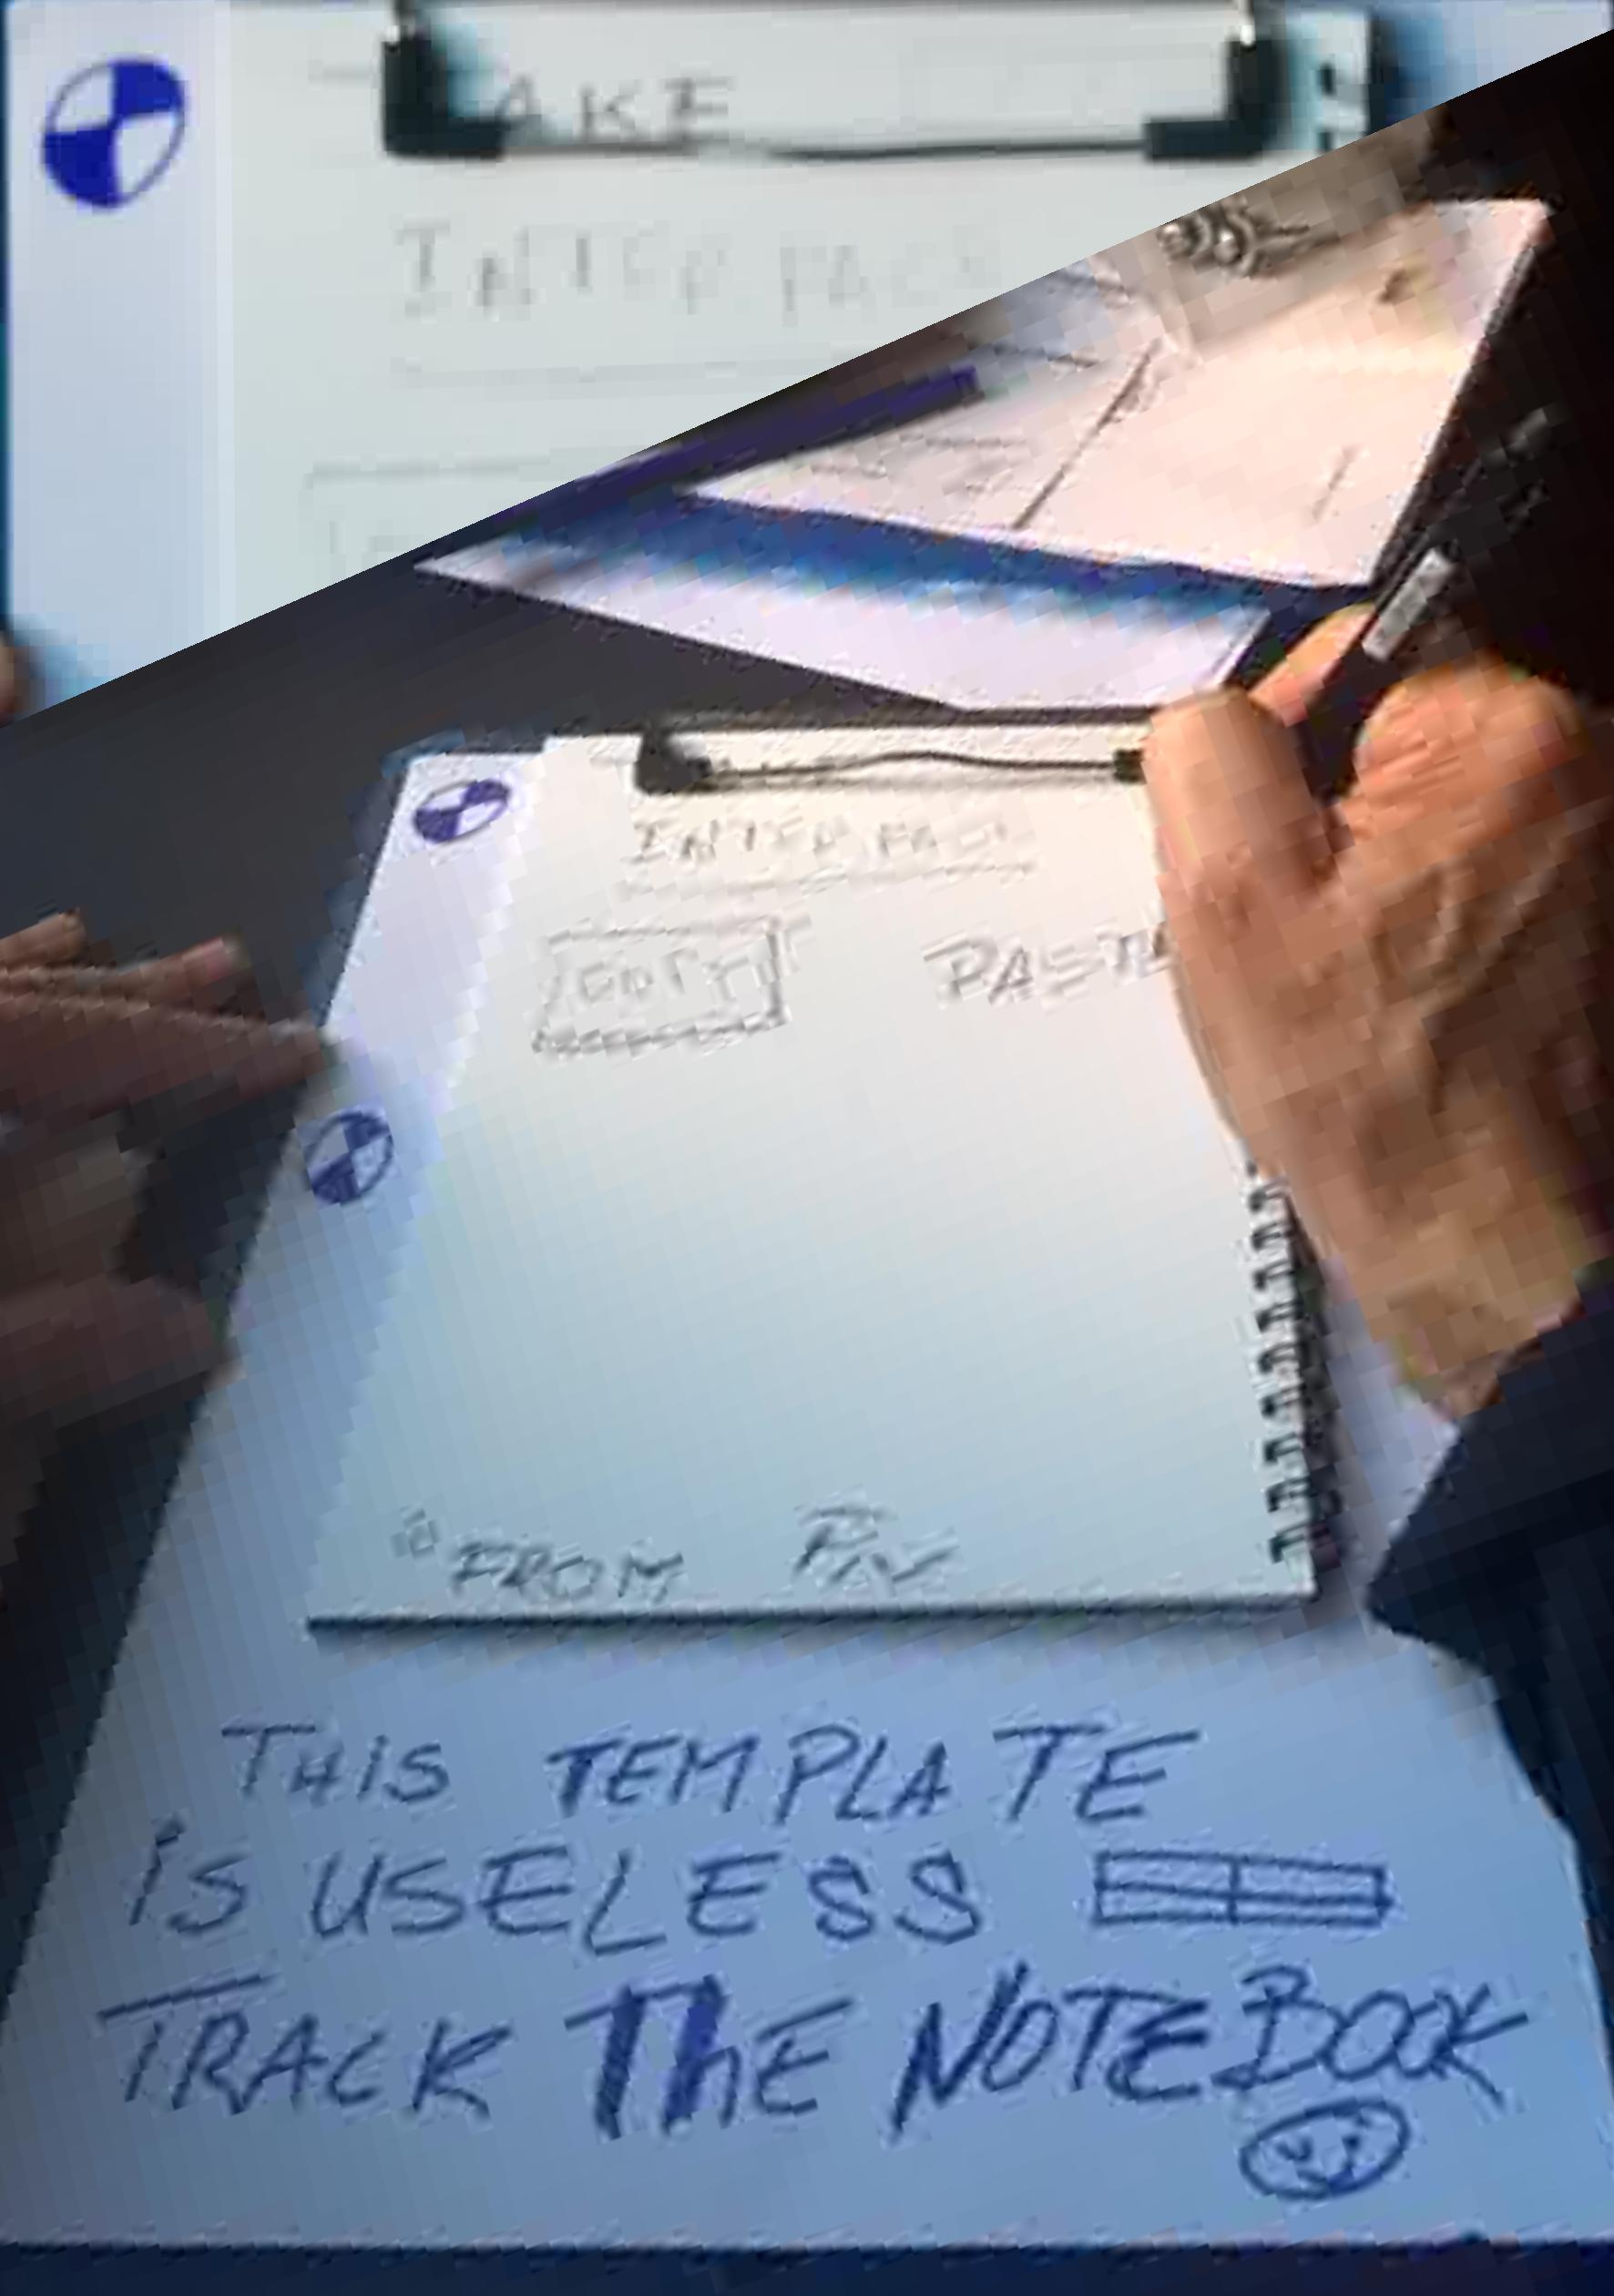 AKE
INTER FACE
INTER FACE
COPY PASTE
FROM
THIS TEMPLATE
iS USELESS
TRACK ThE NOTEBOOK